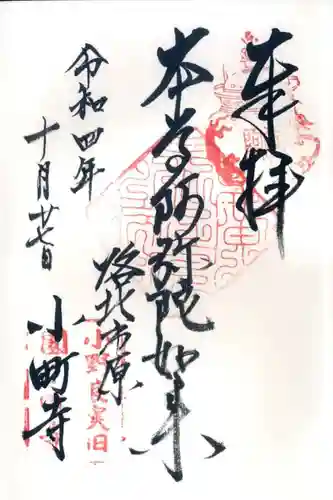 奉拝
本尊阿弥陀如来
洛北市原
小町寺
令和四年
十月廿七日
小野良実旧